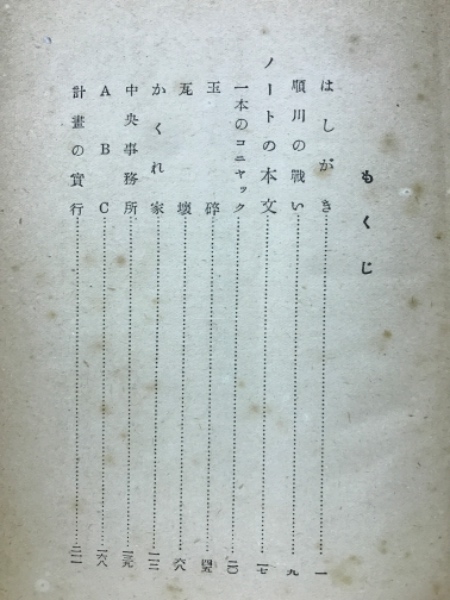 もくじ
はしがき……一
順川の戦い……九
ノートの本文……一七
一本のコニヤック……二〇
玉碎……四五
瓦壊……六八
かくれ家……一一二
中央事務所……一三九
ABC……一六八
計畫の實行……二一一